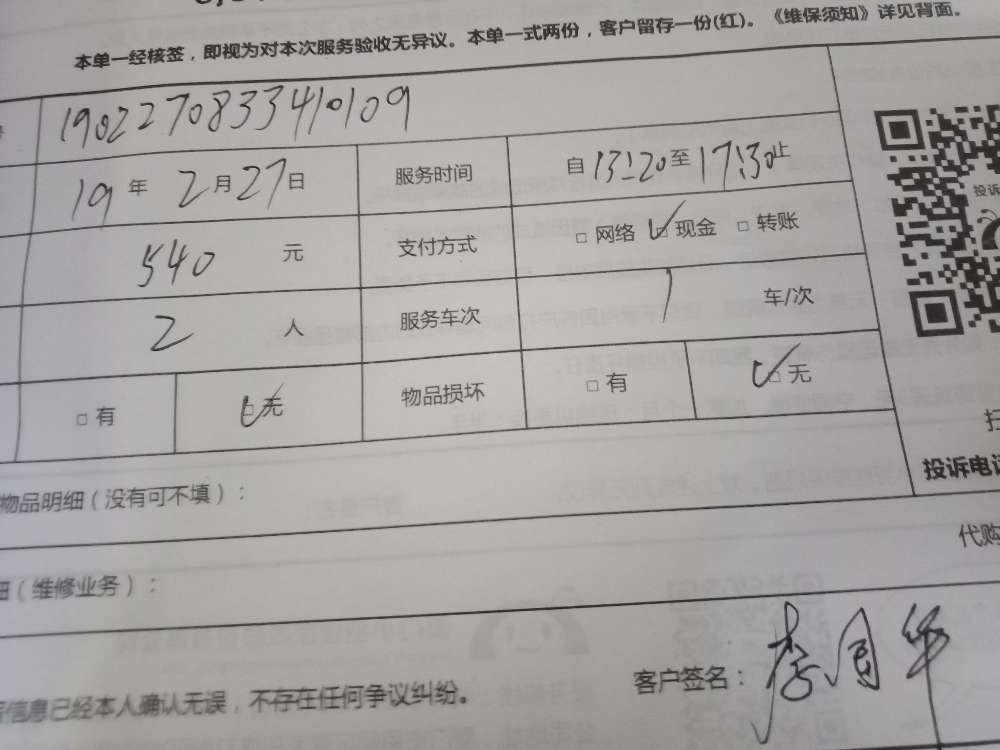 本单一经核签，即视为对本次服务验收无异议。本单一式两份，客户留存一份(红)。《维保须知》详见背面。
190227083410109
19年 2月27日 服务时间 自13:20至17:30止
540 元 支付方式 □网络 ☑现金 □转账
2 人 服务车次 1 车/次
□有 ☑无 物品损坏 □有 ☑无
投诉
扫
投诉电话
物品明细（没有可不填）：
代购
细（维修业务）：
客户签名：李国华
信息已经本人确认无误，不存在任何争议纠纷。